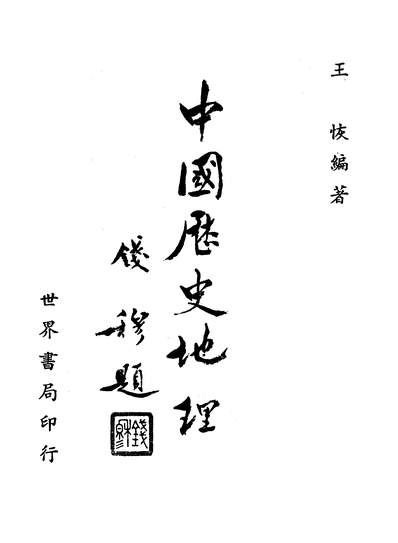 王恢編著
中國歷史地理
錢穆題
錢穆
世界書局印行